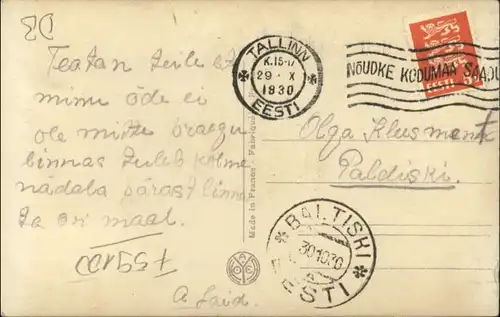 DB
Teatan teile et
minu õde ei
ole mitte praegu
linnas tuleb kolme
nädala pärast linna
ta on maal.
A Laid.
TALLINN
K.15-17
29 · X
1930
EESTI
NÕUDKE KODUMAA SAADU
EESTI
Made in France - Fabriqué
Olga Klusment
Paldiski.
BALTISKI
30 10 30
EESTI